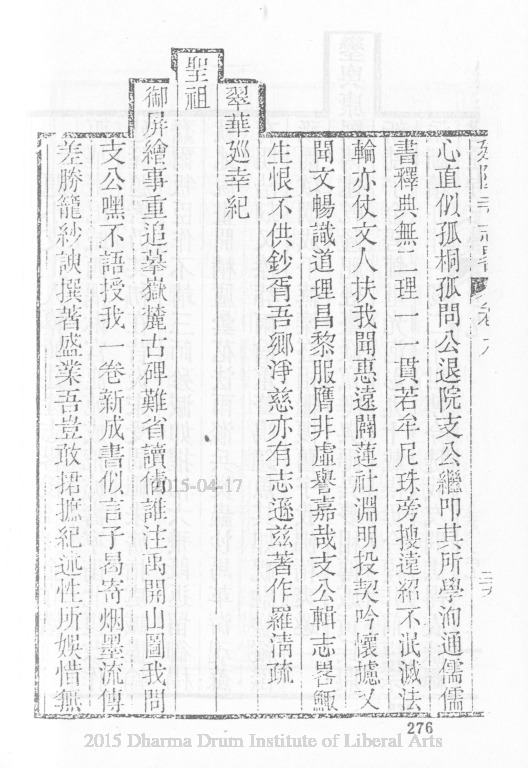 心直似孤桐孤問公退院支公繼叩其所學洵通儒儒
書釋典無二理一一貫若牟尼珠旁搜遠紹不泯滅法
輪亦仗文人扶我聞惠遠闢蓮社淵明投契吟懷攄又
聞文暢識道理昌黎服膺非虛譽嘉哉支公輯志畧緻
生恨不供鈔胥吾鄉淨慈亦有志遜茲著作羅清疏
翠華廵幸紀
聖祖
御屏繪事重追摹嶽麓古碑難省讀倩誰注禹開山圖我問
支公嘿不語授我一卷新成書似言子曷寄烟墨流傳
差勝籠紗諛撰著盛業吾豈敢捃摭紀述性所娛惜無
276
2015-04-17
2015 Dharma Drum Institute of Liberal Arts